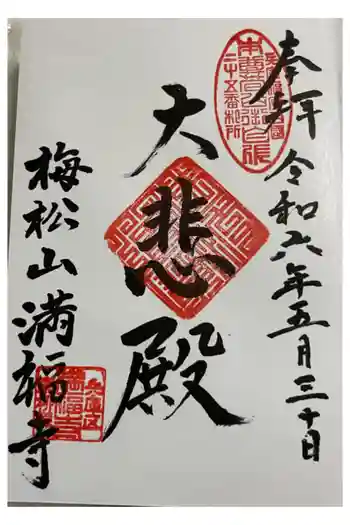 奉拝
令和六年五月三十日
二十五番札所
大悲殿
梅松山満福寺